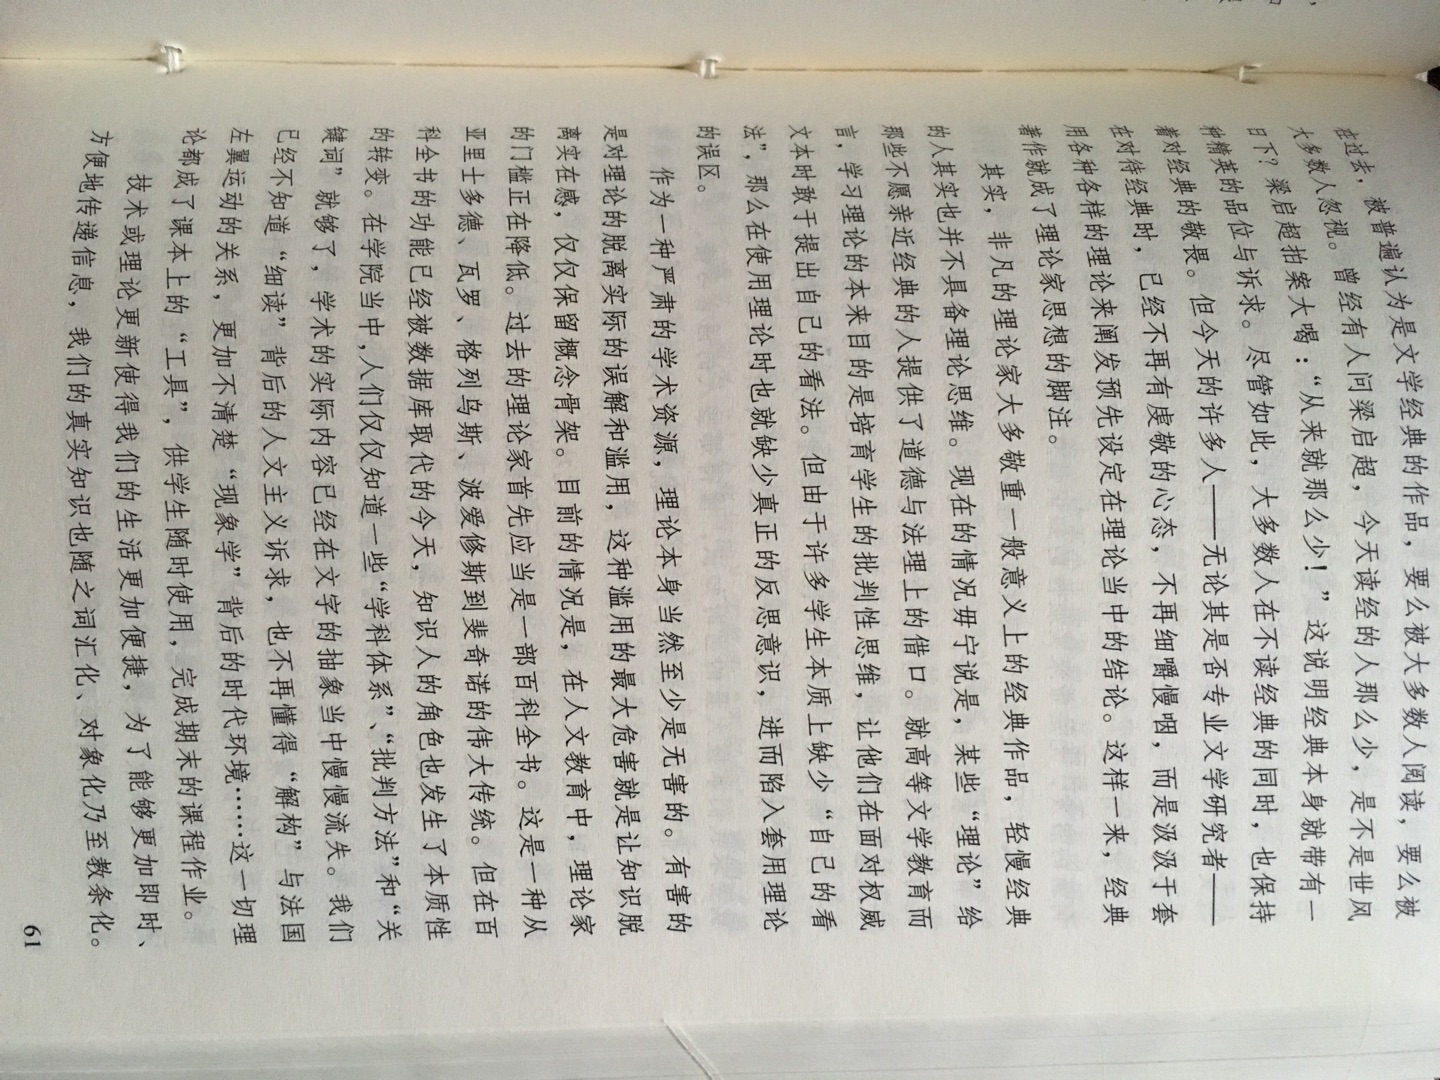 被普遍认为是文学经典的作品，要么被大多数人阅读，要么被
大多数人忽视。曾经有人问梁启超，今天读经的人那么少，是不是世风
日下？梁启超拍案大喝：“从来就那么少！”这说明经典本身就带有一
种精英的品位与诉求。尽管如此，大多数人在不读经典的同时，也保持
着对经典的敬畏。但今天的许多人——无论其是否专业文学研究者——
在对待经典时，已经不再有虔敬的心态，不再细嚼慢咽，而是汲汲于套
用各种各样的理论来阐发预先设定在理论当中的结论。这样一来，经典
著作就成了理论家思想的脚注。
其实，非凡的理论家大多敬重一般意义上的经典作品，轻慢经典
的人其实也并不具备理论思维。现在的情况毋宁说是，某些“理论”给
那些不愿亲近经典的人提供了道德与法理上的借口。就高等文学教育而
言，学习理论的本来目的是培育学生的批判性思维，让他们在面对权威
文本时敢于提出自己的看法。但由于许多学生本质上缺少“自己的看
法”，那么在使用理论时也就缺少真正的反思意识，进而陷入套用理论
的误区。
作为一种严肃的学术资源，理论本身当然至少是无害的。有害的
是对理论的脱离实际的误解和滥用，这种滥用的最大危害就是让知识脱
离实在感，仅仅保留概念骨架。目前的情况是，在人文教育中，理论家
的门槛正在降低。过去的理论家首先应当是一部百科全书。这是一种从
亚里士多德、瓦罗、格列乌斯、波爱修斯到斐奇诺的伟大传统。但在百
科全书的功能已经被数据库取代的今天，知识人的角色也发生了本质性
的转变。在学院当中，人们仅仅知道一些“学科体系”、“批判方法”和“关
键词”就够了，学术的实际内容已经在文字的抽象当中慢慢流失。我们
已经不知道“细读”背后的人文主义诉求，也不再懂得“解构”与法国
左翼运动的关系，更加不清楚“现象学”背后的时代环境……这一切理
论都成了课本上的“工具”，供学生随时使用，完成期末的课程作业。
技术或理论更新使得我们的生活更加便捷，为了能够更加即时、
方便地传递信息，我们的真实知识也随之词汇化、对象化乃至教条化。
61